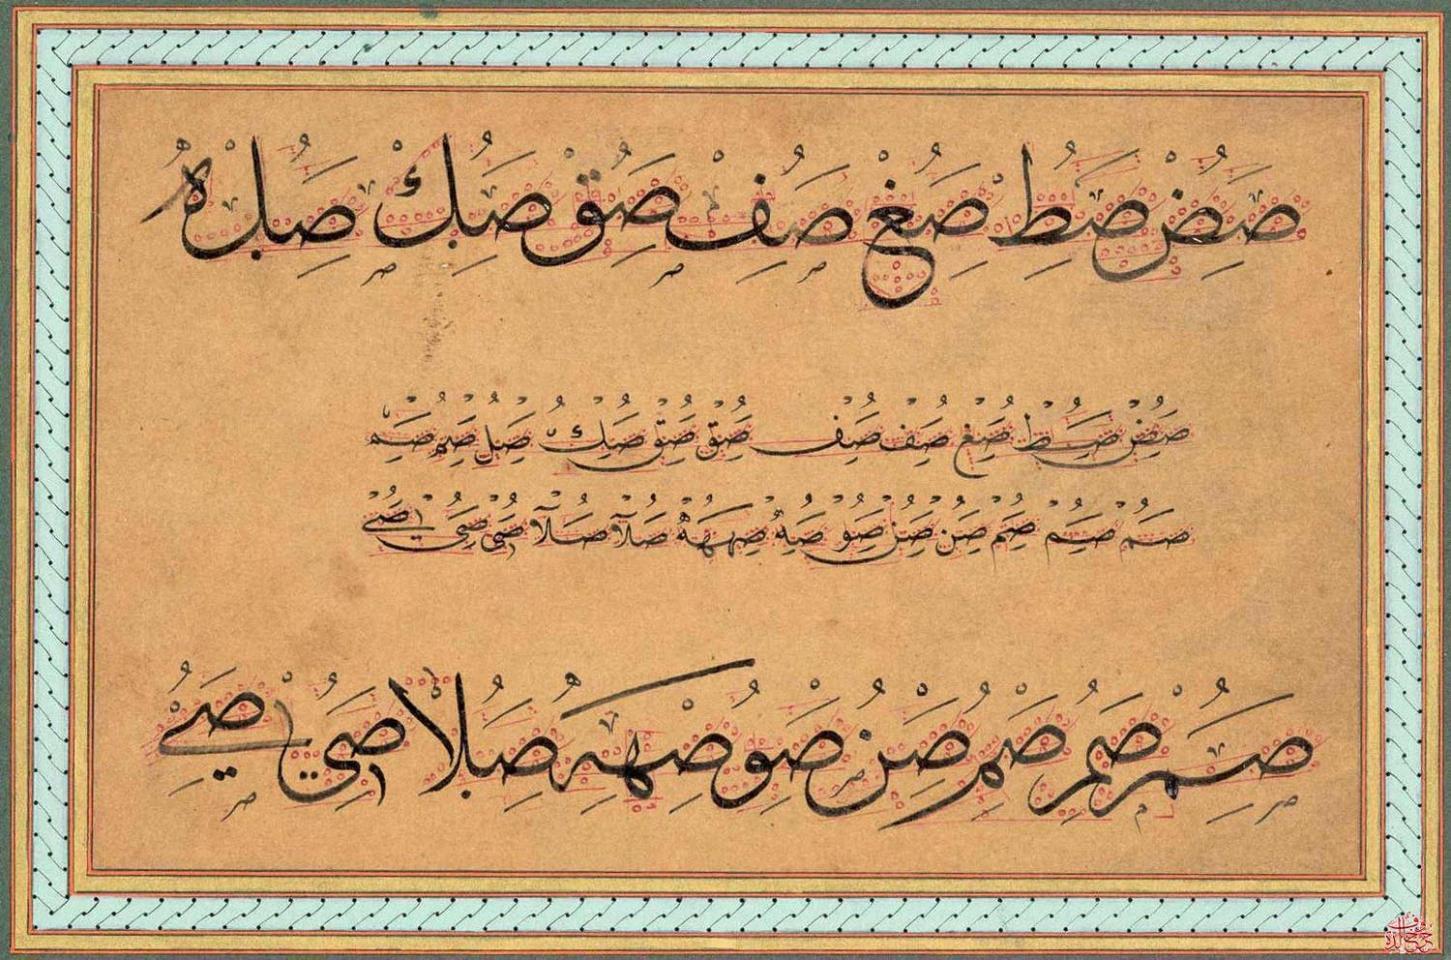 صض صط صغ صف صق صك صل ه
صض صط صغ صف صف صق صق صك صل صم صم
صم صم صم صن صن صو صه صهه صلا صلا صى صى صے
صم صم صم صن صو صهه صلا صى صے